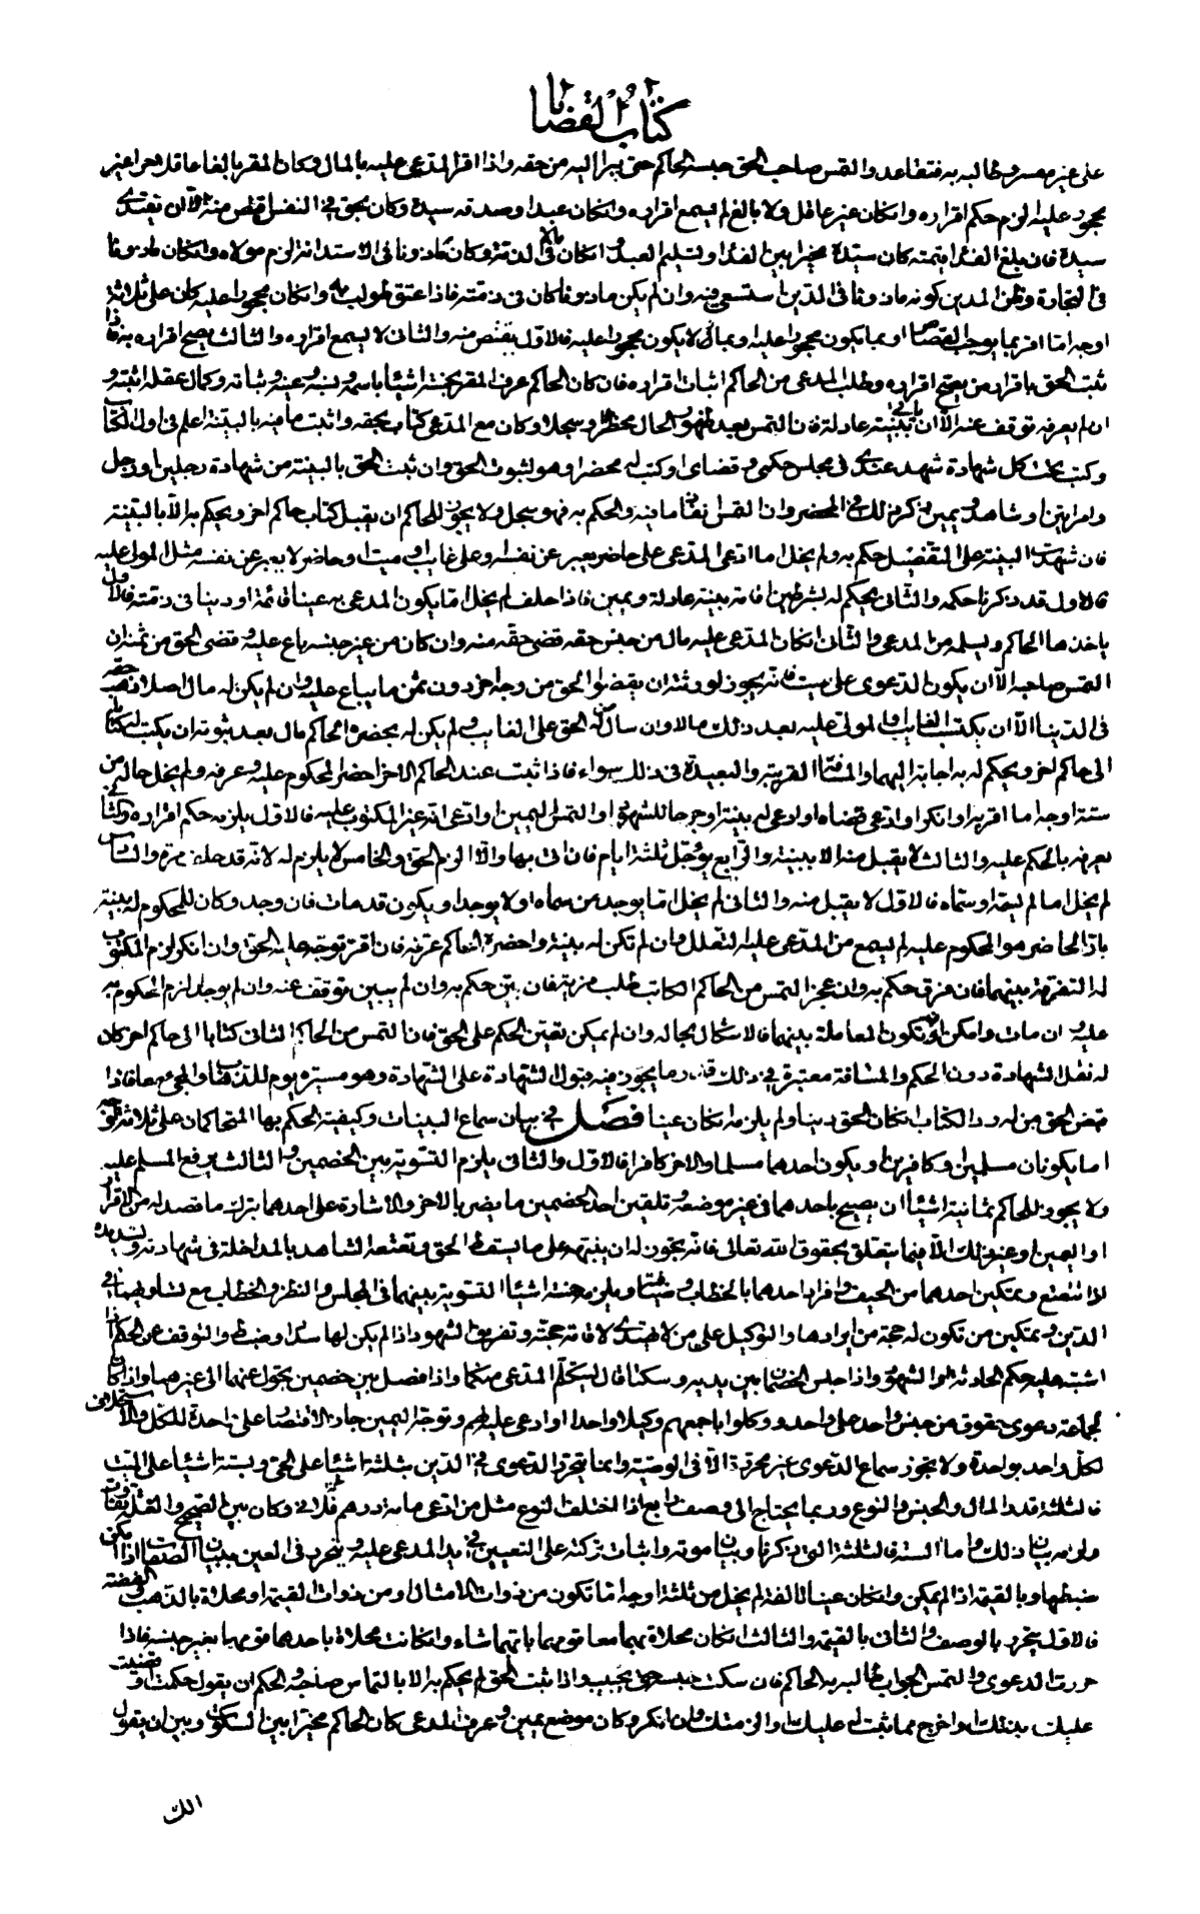 كتاب القضايا
على غير معسر وطالبه به فتقاعد والتمس صاحب الحق حبسه الحاكم حتى يبرأ اليه من حقه واذا اقر المدعى عليه بالمال وكان المقر بالغا عاقلا حرا غير
محجور عليه لزم حكم اقراره وان كان غير عاقل ولا بالغ لم يسمع اقراره وان كان عبدا وصدقه سيده وكان بحق فى النفس اقتص منه الا ان يفتديه
سيده فان بلغ الفداء قيمته كان سيده مخيرا بين الفداء وتسليم العبد وان كان مالا فى الذمة وكان مأذونا فى الاستدانة لزم مولاه وان كان مأذونا
فى التجارة وظن المدين كونه مأذونا فى الدين استسعى فيه وان لم يكن مأذونا كان فى ذمته فاذا عتق طولب به وان كان محجورا عليه كان على ثلاثة
اوجه اما اقر بما يوجب القصاص او بما يكون محجورا عليه وبمال لا يكون محجورا عليه فالاول يقتص منه والثانى لا يسمع اقراره والثالث يصح اقراره به فاذا
ثبت الحق باقرار من يصح اقراره وطلب المدعى من الحاكم اثبات اقراره فان كان الحاكم عرف المقر بخمسة اشياء باسمه ونسبه وعينه وثباته وكمال عقله اثبته و
ان لم يعرفه توقف عنه الا ان يأتى ببينة عادلة فان التمس بعد ظهور الحال محضرا وسجلا وكان مع المدعى كتاب بحقه واثبت ما فيه بالبينة اعلم فى اول الكتاب
وكتب تحت كل شهادة شهد عندى فى مجلس حكمى وقضاى او كتب له محضرا وهو لثبوت الحق وان ثبت الحق بالبينة من شهادة رجلين او رجل
وامراتين او شاهد ويمين ذكر ذلك فى المحضر وان التمس نفاذ ما فيه والحكم به فهو سجل ولا يجوز للحاكم ان يقبل كتاب حاكم اخر ويحكم به الا بالبينة
فان شهدت البينة على التفصيل حكم به ولم يخل اما ادعى المدعى على حاضر يعبر عن نفسه او على غايب او ميت او حاضر لا يعبر عن نفسه مثل المولى عليه
فالاول قد ذكرنا حكمه والثانى يحكم له بشرطين اقامة بينة عادلة ويمين فاذا حلف لم يخل اما يكون المدعى به عينا قائمة او دينا فى ذمته فالاول
ياخذها الحاكم ويسلم من المدعى والثانى ان كان للمدعى عليه مال من جنس حقه قضى حقه منه وان كان من غير جنسه باع عليه وقضى الحق من ثمنه ان
التمس صاحبه الا ان يكون الدعوى على ميت فانه يجوز لورثته ان يقضوا الحق من وجه اخر دون ثمن ما يباع عليه وان لم يكن له مال اصلا ذهب حقه
فى الدنيا الا ان يكتسب الغايب او المولى عليه بعد ذلك مالا وان سال من له الحق على الغايب ولم يكن له بحضرة الحاكم مال بعد ثبوته ان يكتب له كتابا
الى حاكم اخر ويحكم له به اجابة اليهما والمسافة القريبة والبعيدة فى ذلك سواء فاذا ثبت عند الحاكم الاخر احضر المحكوم عليه وعرفه ولم يخل حاله من
ستة اوجه اما اقر به او انكر او ادعى قضاه او ادعى له بينة او جرحا للشهود او التمس اليمين او ادعى انه غير المكتوب عليه فالاول يلزمه حكم اقراره والثانى
يعرفه بالحكم عليه والثالث لا يقبل منه الا ببينة والرابع يؤجل ثلثة ايام فان اتى بها والا الزم الحق والخامس لا يلزم له لانه قد حلف مرة والسادس
لم يخل اما لم يسمه او سماه فالاول لا يقبل منه والثانى لم يخل اما يوجد من سماه او لا يوجد او يكون قد مات فان وجد وكان للمحكوم له بينة
بان الحاضر هو المحكوم عليه لم يسمع من المدعى عليه التعلل وان لم تكن له بينة واحضره الحاكم عرفه فان اقر توجه عليه الحق وان انكر لزم المكتوب
له التفرقة بينهما فان فرق حكم به وان عجز التمس من الحاكم الكاتب طلب مزية فان بين حكم به وان لم يبين توقف عنه وان لم يوجد لزم المحكوم به
عليه وان مات وامكن ان تكون المعاملة بينهما فالاشكال بحاله وان لم يمكن تعين الحكم على الحى فان التمس من الحاكم الثانى كتابا الى حاكم اخر كان
له نقل الشهادة دون الحكم والمسافة معتبرة فى ذلك قدر ما يجوز فيه قبول الشهادة على الشهادة وهو مسيرة يوم للذهاب والمجئ معا فاذا
قبض الحق من له رد الكتاب ان كان الحق دينا ولم يلزمه ان كان عينا فصل فى بيان سماع البينات وكيفية الحكم بها المتحاكمان على ثلاثة اوجه
اما يكونان مسلمين او كافرين او يكون احدهما مسلما والاخر كافرا فالاول والثانى يلزم التسوية بين الخصمين والثالث يرفع المسلم عليه
ولا يجوز للحاكم ثمانية اشياء ان يصيح باحدهما فى غير موضعه وتلقين احد الخصمين ما يضر بالاخر والاشارة على احدهما بترك ما قصده من الاقرار
او اليمين او غير ذلك الا فيما يتعلق بحقوق الله تعالى فانه يجوز له ان ينبهه على ما يسقط الحق وتعتعة الشاهد بالمداخلة فى شهادته وتسديده
اذا تتعتع وتمكين احدهما من الحيف وافراد احدهما بالخطاب وضيافته ويلزمه خمسة اشياء التسوية بينهما فى المجلس والنظر والخطاب مع تساويهما فى
الدين وتمكين من تكون له حجة من ايرادها والتوكيل على من لا يهتدى لاقامة حجة وتفريق الشهود اذا لم يكن لها سداد وضبط والتوقف عن الحكم اذا
اشتبه عليه حكم الحادثة او الشهود واذا جلس الخصمان بين يديه وسكتا قال ليتكلم المدعى منكما واذا فصل بين خصمين تحول عنهما الى غيرهما واذا كان
لجماعة دعوى حقوق من جنس واحد على واحد ووكلوا باجمعهم وكيلا واحدا او ادعى عليهم وتوجه اليمين جاز الاقتصار على واحدة للكل والاستحلاف
لكل واحد بواحدة ولا يجوز سماع الدعوى غير محررة الا فى الوصية وانما يتحرر الدعوى فى الدين بثلثة اشياء على الحى وبستة اشياء على الميت
فالثلثة قدر المال والجنس والنوع وربما يحتاج الى وصف رابع اذا اختلف النوع مثل من ادعى مائة درهم وكان بين الصحيح والغلة تفاوت
ولزمه بيان ذلك واما الستة فالثلثة التى ذكرنا وبيان موته واثبات تركته على التعيين فى يد المدعى عليه ويتحرر فى العين ببيان الصفات اذا امكن
ضبطها وبالقيمة اذا لم يمكن وان كان عينا تالفة لم يخل من ثلثة اوجه اما تكون من ذوات الامثال او من ذوات القيمة او محلاة بالذهب والفضة
فالاول يتحرر بالوصف والثانى بالقيمة والثالث ان كان محلاة بهما معا قومها بايهما شاء وان كانت محلاة باحدهما قومها بغير جنسه فاذا
حررت الدعوى والتمس الجواب طالبه به الحاكم فان سكت حبسه حتى يجيب واذا ثبت الحق لم يحكم به الا بالتماس صاحبه والحكم ان يقول حكمت او قضيت
عليك بذلك او اخرج مما ثبت له عليك او الزمتك وان انكر وكان موضع يمين وعرف المدعى كان الحاكم مخيرا بين السكوت وبين ان يقول
الك